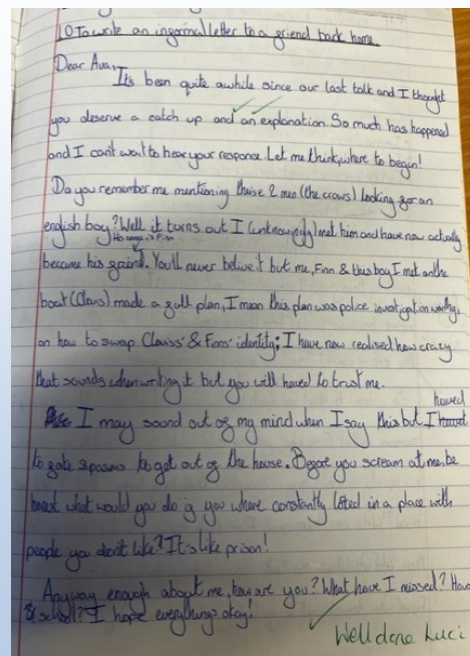 LO To write an informal letter to a friend back home.
Dear Ava,
It's been quite awhile since our last talk and I thought
you deserve a catch up and an explanation. So much has happened
and I can't wait to hear your response. Let me think, where to begin!
Do you remember me mentioning those 2 men (the crows) looking for an
english boy? Well it turns out I (unknowingly) met him and have now actually
His name is Finn
became his friend. You'll never belive it but me, Finn & this boy I met on the
boat (Clovis) made a full plan, I mean this plan was police investigation worthy,
on how to swap Clovis' & Finns' identity; I have now realised how crazy
that sounds when writing it but you will have to trust me.
I may sound out of my mind when I say this but I
to fake spasms to get out of the house. Before you scream at me be
honest what would you do if you where constantly in a place with
people you don't like? It's like prison!
Anyway enough about me, how are you? What have I missed? How
is school? I hope everythings okay!
Well done Luci